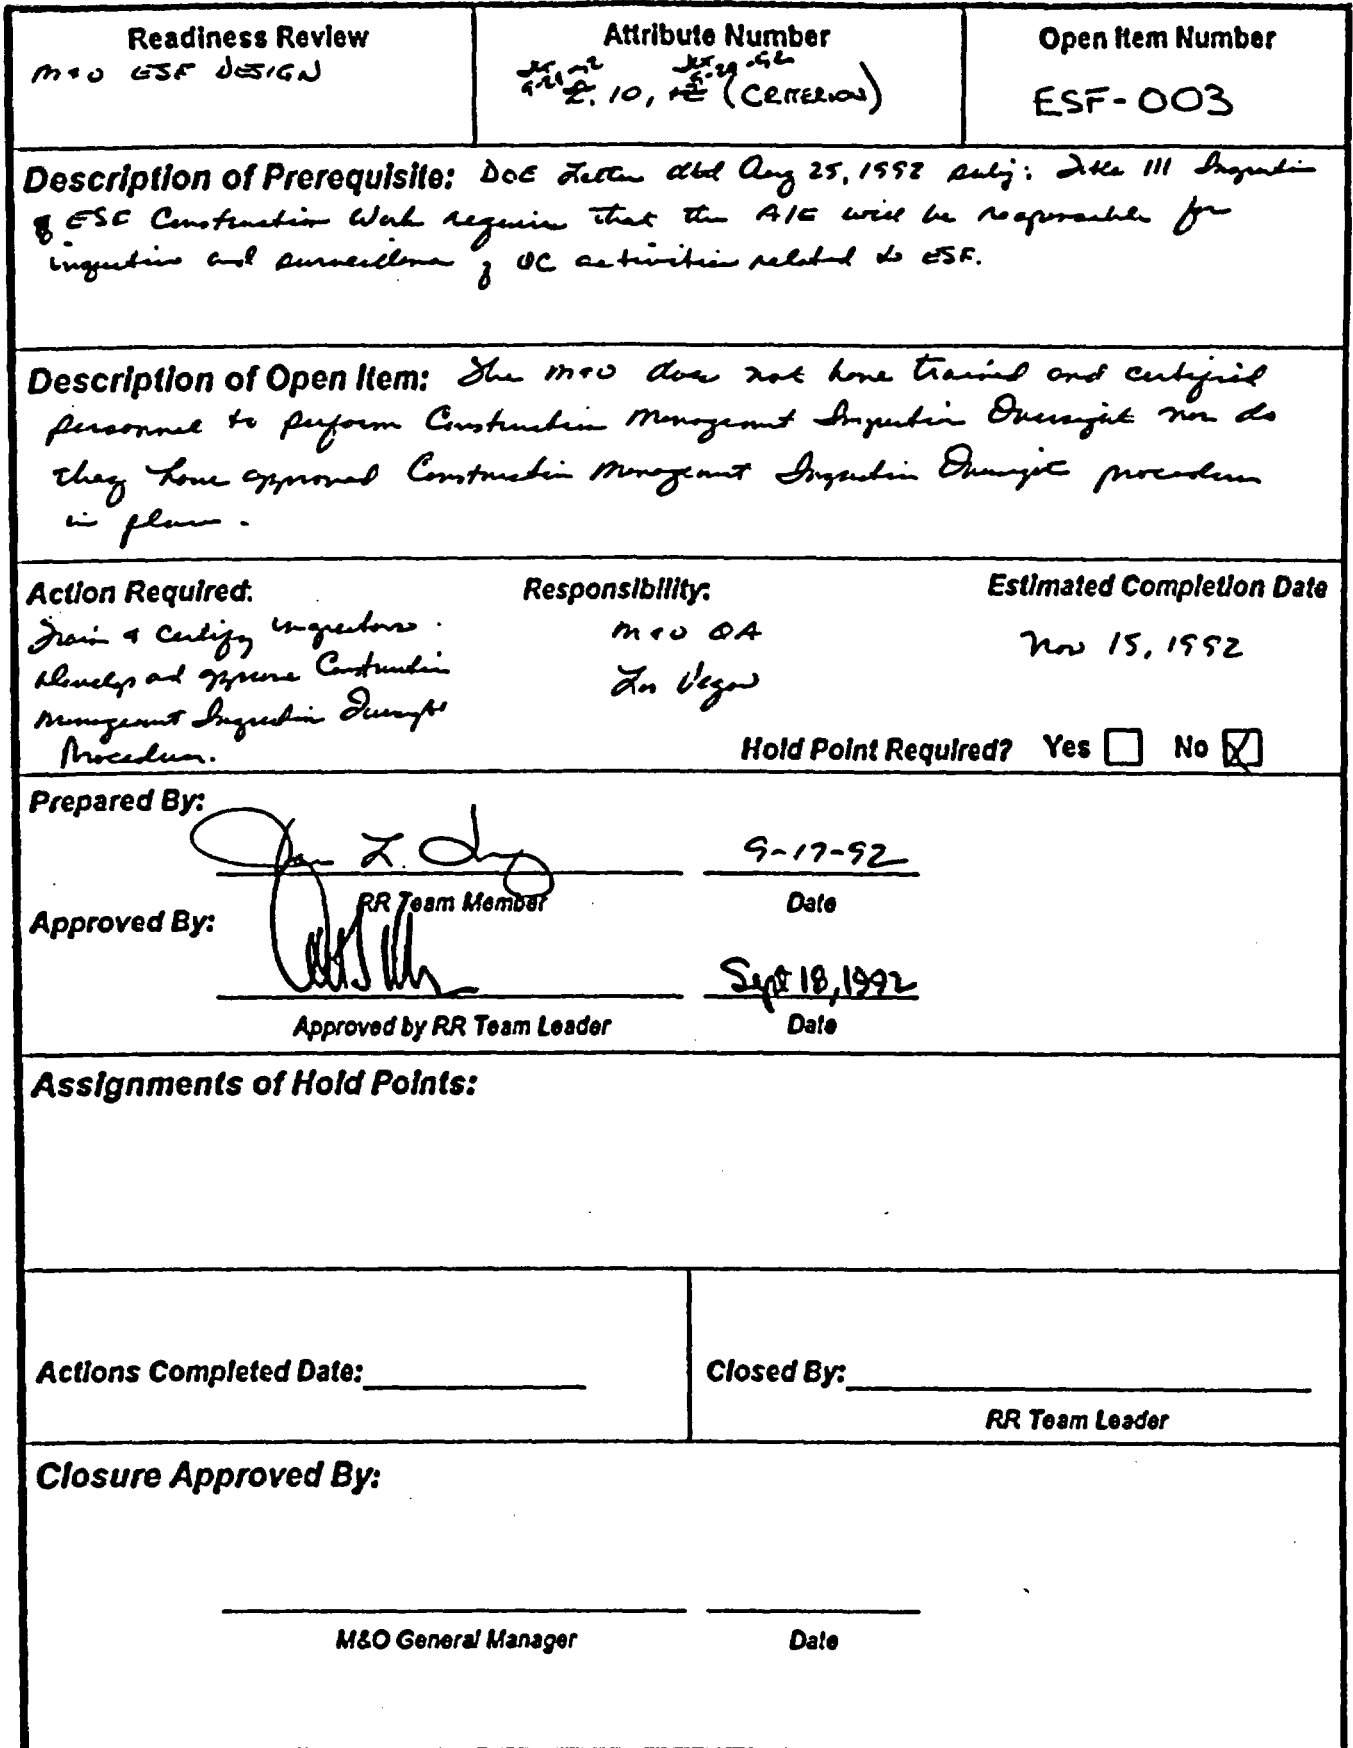 Readiness Review
M&O ESF DESIGN
Attribute Number
2.10, (CRITERION)
Open Item Number
ESF-003
Description of Prerequisite: DOE Letter dtd Aug 25, 1992 subj: Title III Inspection
of ESF Construction Work requires that the A/E will be responsible for
inspection and surveillance of QC activities related to ESF.
Description of Open Item: The M&O does not have trained and certified
personnel to perform Construction Management Inspection Oversight nor do
they have approved Construction Management Inspection Oversight procedures
in place.
Action Required:
Train & Certify inspectors.
Develop and approve Construction
Management Inspection Oversight
Procedures.
Responsibility:
M&O QA
Las Vegas
Estimated Completion Date
Nov 15, 1992
Hold Point Required? Yes No
Prepared By:
9-17-92
RR Team Member Date
Approved By:
Sept 18, 1992
Approved by RR Team Leader Date
Assignments of Hold Points:
Actions Completed Date:
Closed By:
RR Team Leader
Closure Approved By:
M&O General Manager Date